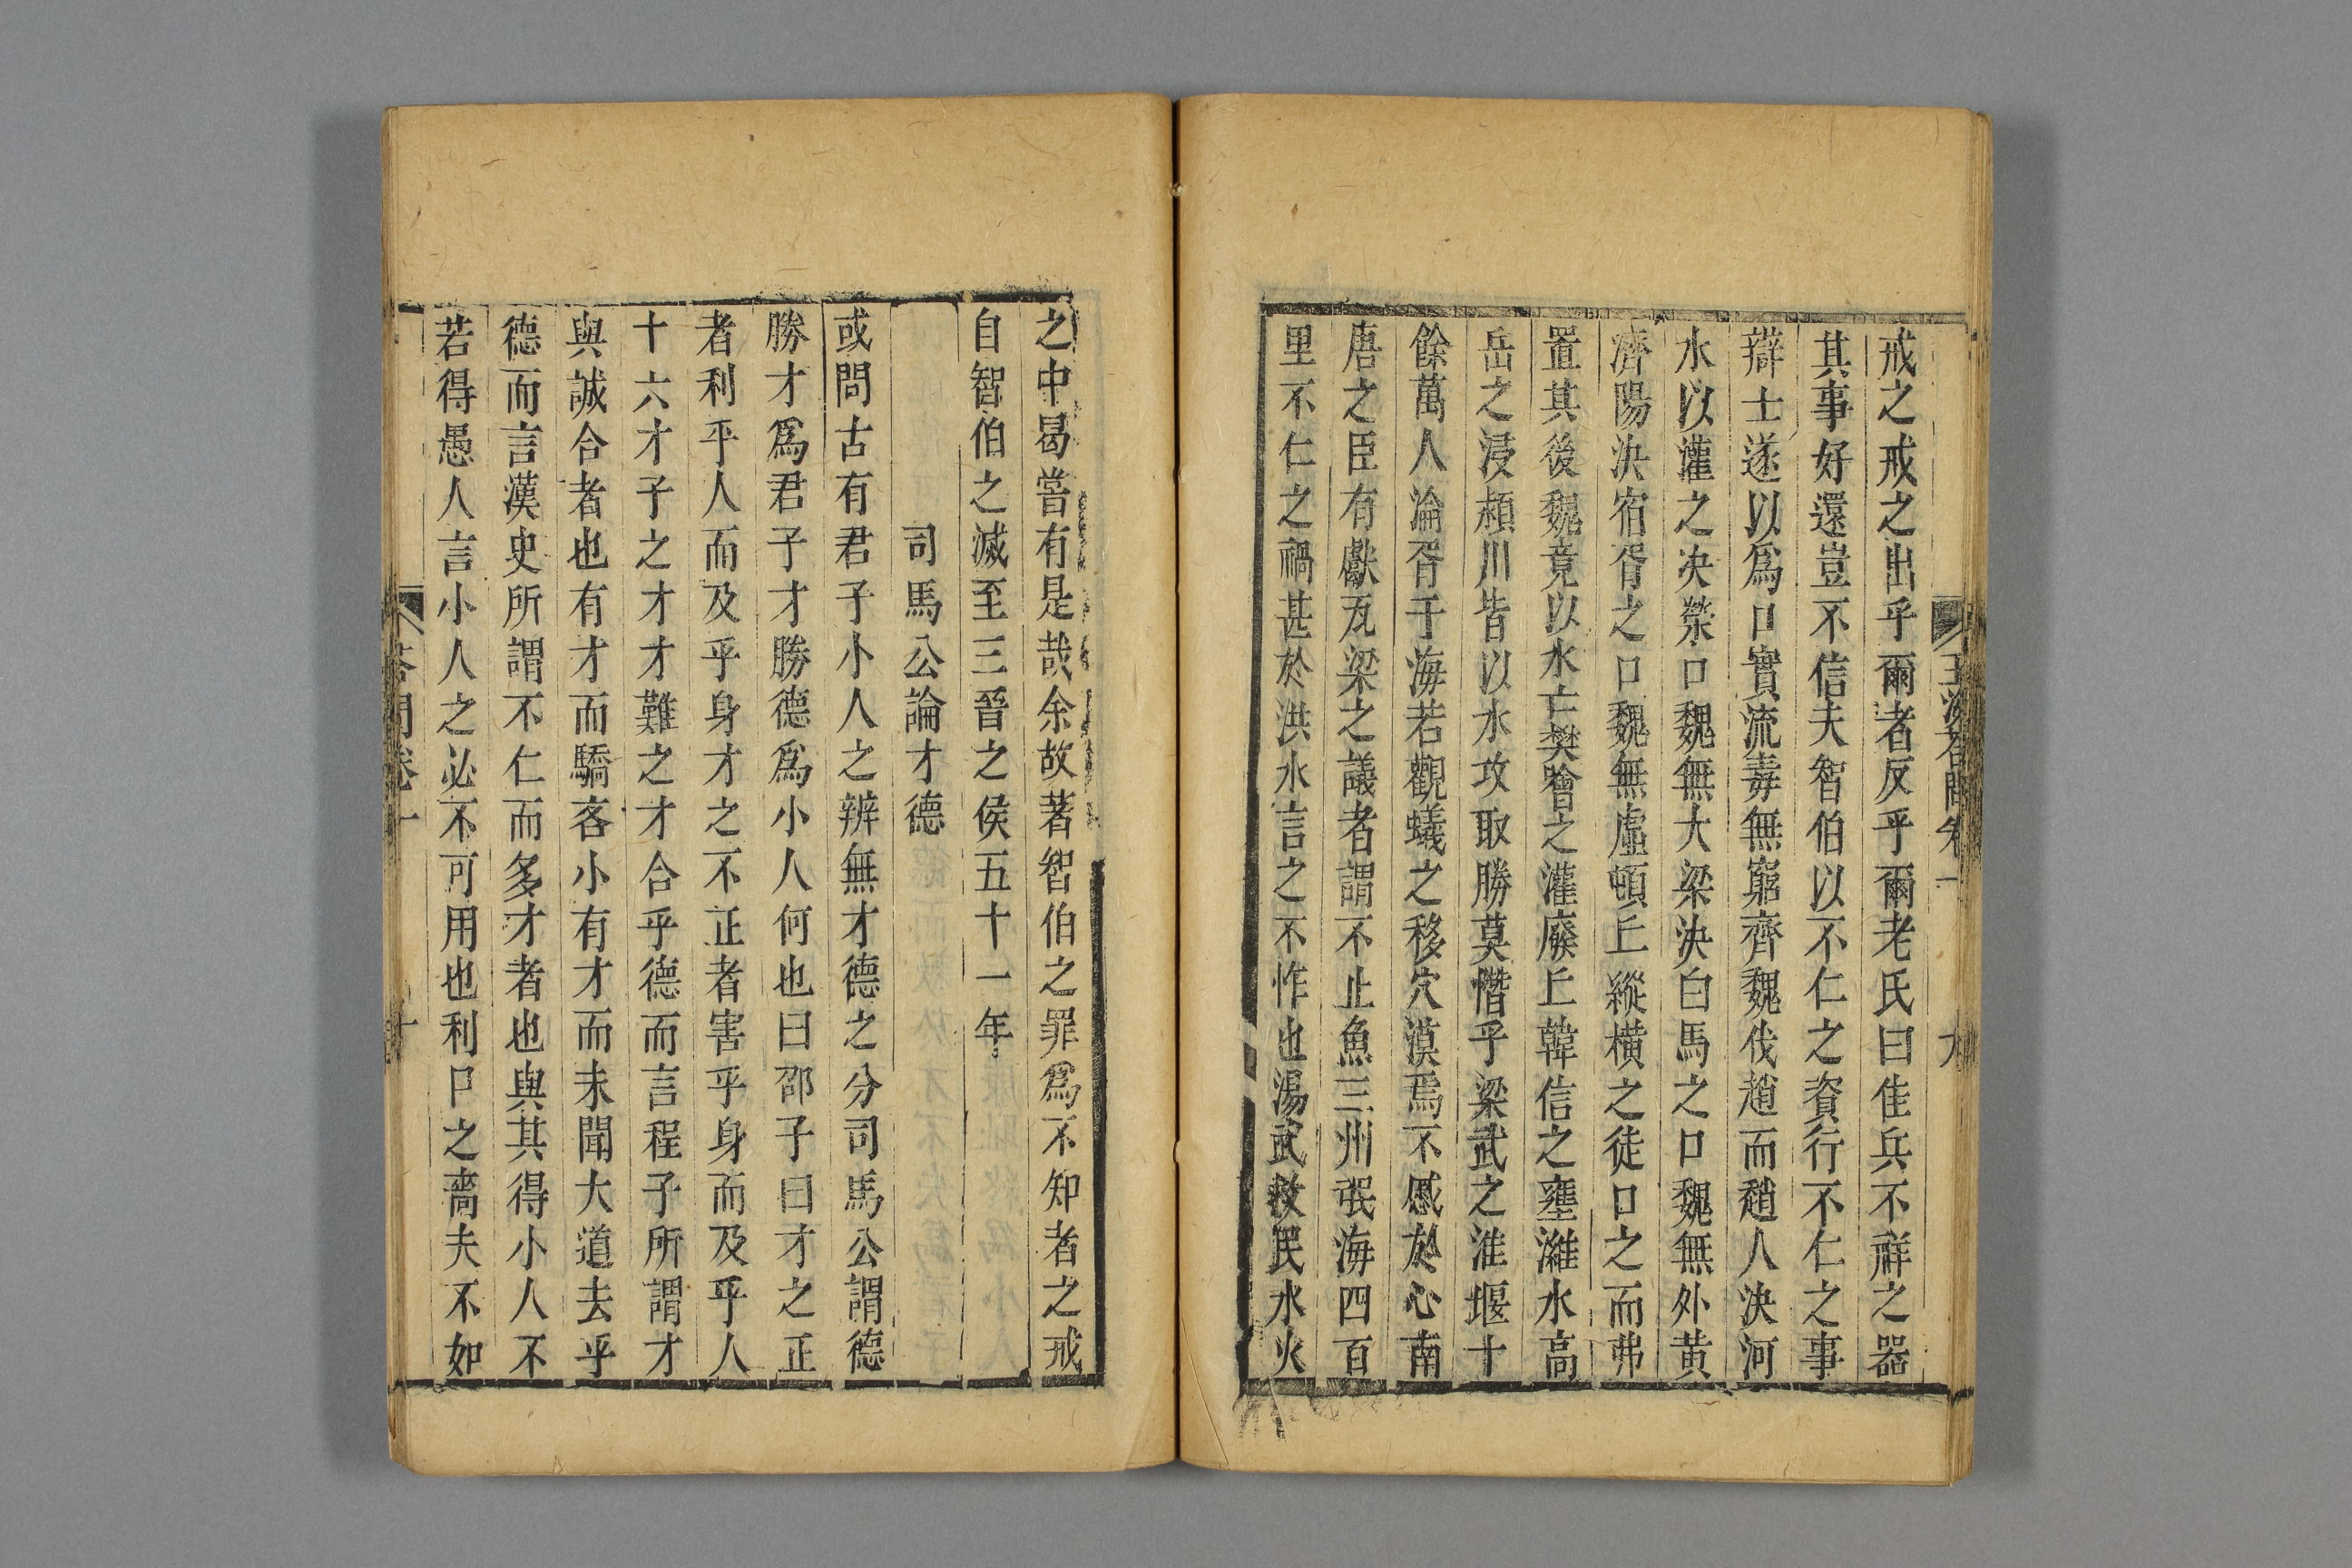 戒之戒之出乎爾者反乎爾老氏曰佳兵不祥之器
其事好還豈不信夫智伯以不仁之資行不仁之事
辯士遂以爲口實流毒無窮齊魏伐趙而趙人決河
水以灌之决滎口魏無大梁決白馬之口魏無外黄
濟陽決宿胥之口魏無虛頓丘縱橫之徒口之而弗
置其後魏竟以水亡樊噲之灌廢丘韓信之壅濰水高
岳之浸潁川皆以水攻取勝莫憯乎梁武之淮堰十
餘萬人淪胥于海若觀蟻之移穴漠焉不慼於心南
唐之臣有獻瓦梁之議者謂不止魚三州氓海四百
里不仁之禍甚於洪水言之不怍也湯武救民水火
之中曷嘗有是哉余故著智伯之罪爲不知者之戒
自智伯之滅至三晉之侯五十一年
司馬公論才德
或問古有君子小人之辨無才德之分司馬公謂德
勝才爲君子才勝德爲小人何也曰邵子曰才之正
者利乎人而及乎身才之不正者害乎身而及乎人
十六才子之才才難之才合乎德而言程子所謂才
與誠合者也有才而驕吝小有才而未聞大道去乎
德而言漢史所謂不仁而多才者也與其得小人不
若得愚人言小人之必不可用也利口之嗇夫不如
答問卷一
十